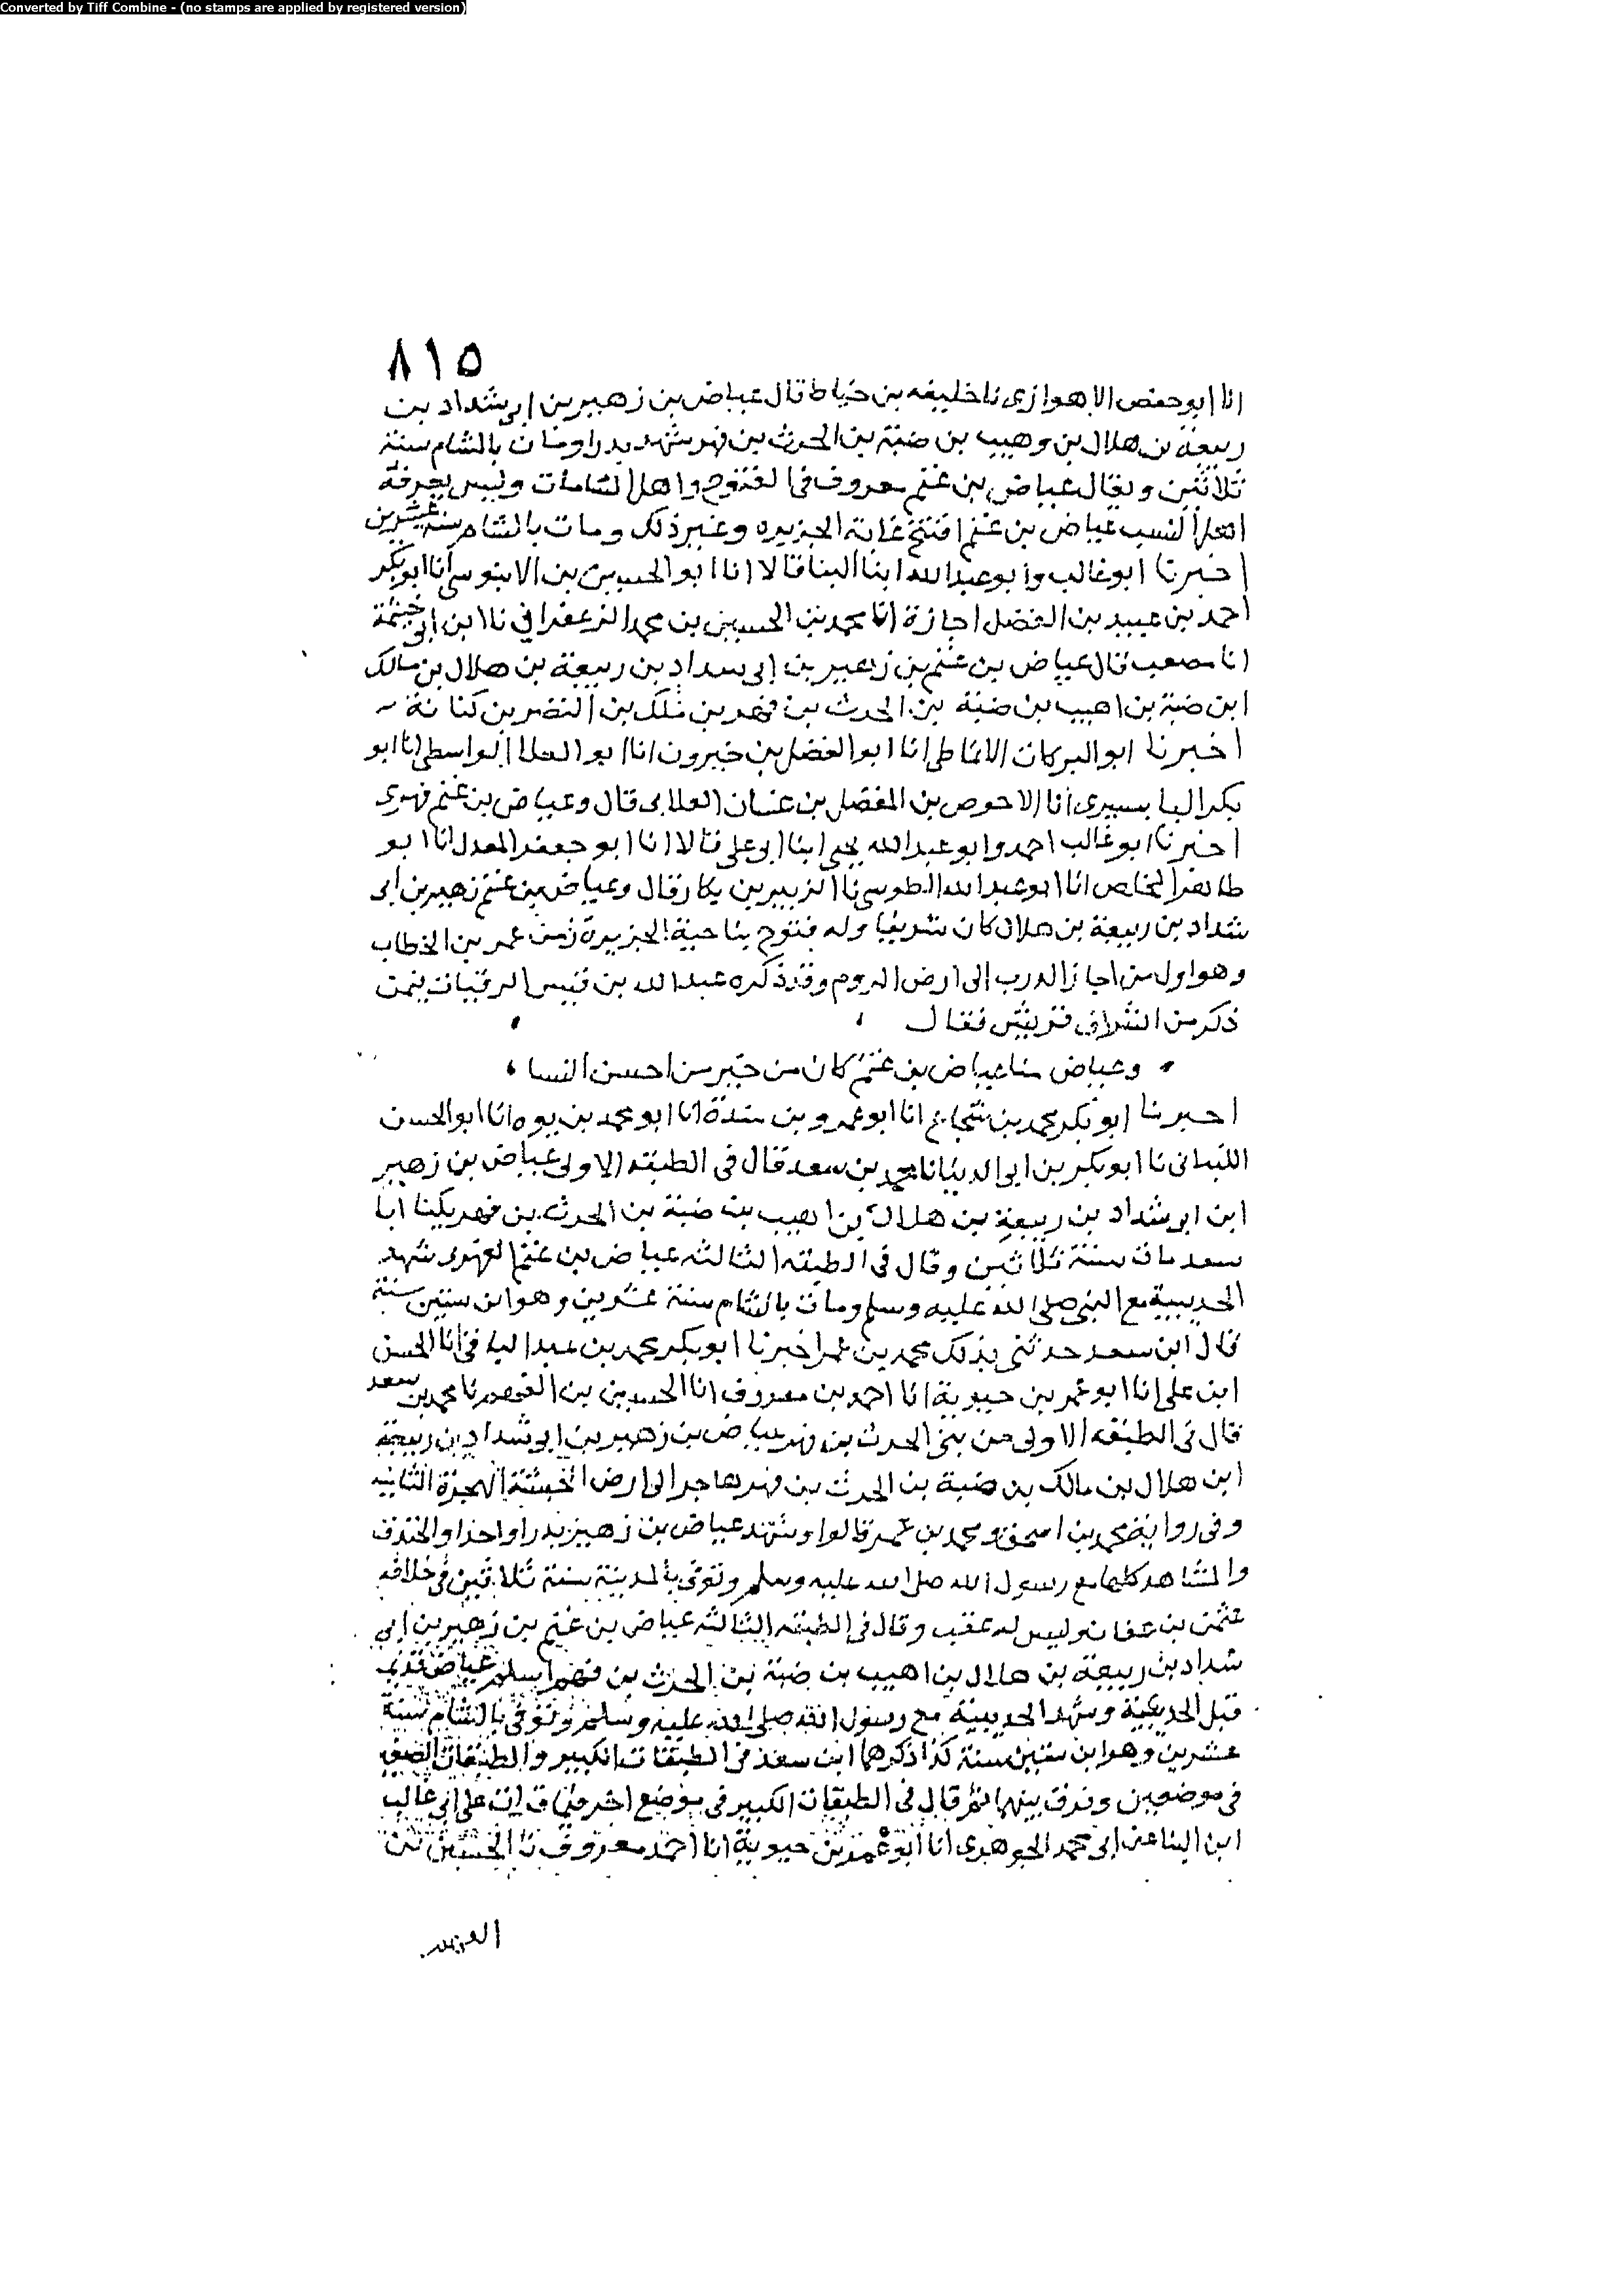 Converted by Tiff Combine - (no stamps are applied by registered version)
٨١٥
انا ابو حفص الاهوازى نا خليفه بن خياط قال عياض بن زهير بن ابى شداد بن
ربيعة بن هلال بن وهيب بن ضبة بن الحرث بن فهر شهد بدرا ومات بالشام سنة
ثلاثين ويقال عياض بن غنم معروف فى الفتوح واهل الشامات وليس يعرفه
اهل النسب عياض بن غنم افتتح عامة الجزيره وغير ذلك ومات بالشام سنة عشرين
اخبرنا ابو غالب وابو عبد الله ابنا البنا قالا انا ابو الحسين بن الابنوسى انا ابو بكر
احمد بن عبيد بن الفضل اجازة انا محمد بن الحسين بن محمد الزعفرانى نا ابن ابى خيثمة
انا مصعب قال عياض بن غنم بن زهير بن ابى سداد بن ربيعة بن هلال بن مالك
ابن ضبة بن اهيب بن ضبة بن الحرث بن فهر بن ملك بن النضر بن كنانة
اخبرنا ابو البركات الانماطى انا ابو الفضل بن خيرون انا ابو العلا الواسطى انا ابو
بكر البابسيرى انا الاحوص بن المفضل بن غسان الغلابى قال وعياض بن غنم فهرى
اخبرنا ابو غالب احمد وابو عبد الله يحيى ابنا ابو على قالا انا ابو جعفر المعدل انا ابو
طاهر المخلص انا ابو عبد الله الطوسى نا الزبير بن بكار قال وعياض بن غنم زهير بن ابى
شداد بن ربيعة بن هلال كان شريفا وله فتوح بناحية الجزيرة زمن عمر بن الخطاب
وهو اول من اجاز الدرب الى ارض الروم وقد ذكره عبد الله بن قيس الرقيات فيمن
ذكر من اشراف قريش فقال
وعياض منا عياض بن غنم كان من خير من احسن النسا
اخبرنا ابو بكر محمد بن شجاع انا ابو عمرو بن مندة انا ابو محمد بن يوه انا ابو الحسن
اللنبانى نا ابو بكر بن ابى الدنيا نا محمد بن سعد قال فى الطبقه الاولى عياض بن زهير
ابن ابى شداد بن ربيعة بن هلال بن اهيب بن ضبة بن الحرث بن فهر يكنا ابا
سعد مات سنة ثلاثين وقال فى الطبقه الثالثه عياض بن غنم الفهرى شهد
الحديبية مع النبى صلى الله عليه وسلم ومات بالشام سنة عشرين وهو ابن ستين سنة
قال ابن سعد حدثنى بذلك محمد بن عمر اخبرنا ابو بكر محمد بن عبد الباقى انا الحسن
ابن على انا ابو عمر بن حيوية انا احمد بن معروف انا الحسين بن الفهم نا محمد بن سعد
قال فى الطبقه الاولى من بنى الحرث بن فهر عياض بن زهير بن ابى شداد بن ربيعة
ابن هلال بن مالك بن ضبة بن الحرث بن فهر هاجر الى ارض الحبشة الهجرة الثانيه
وفى رواية محمد بن اسحق ومحمد بن عمر قالوا وشهد عياض بن زهير بدرا واحدا والخندق
والمشاهد كلها مع رسول الله صلى الله عليه وسلم وتوفى بالمدينة سنة ثلاثين فى خلافه
عثمن بن عفان وليس له عقب وقال فى الطبقه الثالثه عياض بن غنم بن زهير بن ابى
شداد بن ربيعة بن هلال بن اهيب بن ضبة بن الحرث بن فهر اسلم عياض قديما
قبل الحديبية وشهد الحديبية مع رسول الله صلى الله عليه وسلم وتوفى بالشام سنة
عشرين وهو ابن ستين سنة كذا ذكرهما ابن سعد فى الطبقات الكبير والطبقات الصغير
فى موضعين وفرق بينهما ثم قال فى الطبقات الكبير فى موضع اخر فيما قرات على ابى غالب
ابن البنا عن ابى محمد الجوهرى انا ابو عمر بن حيوية انا احمد معروف نا الحسين بن
الفهم